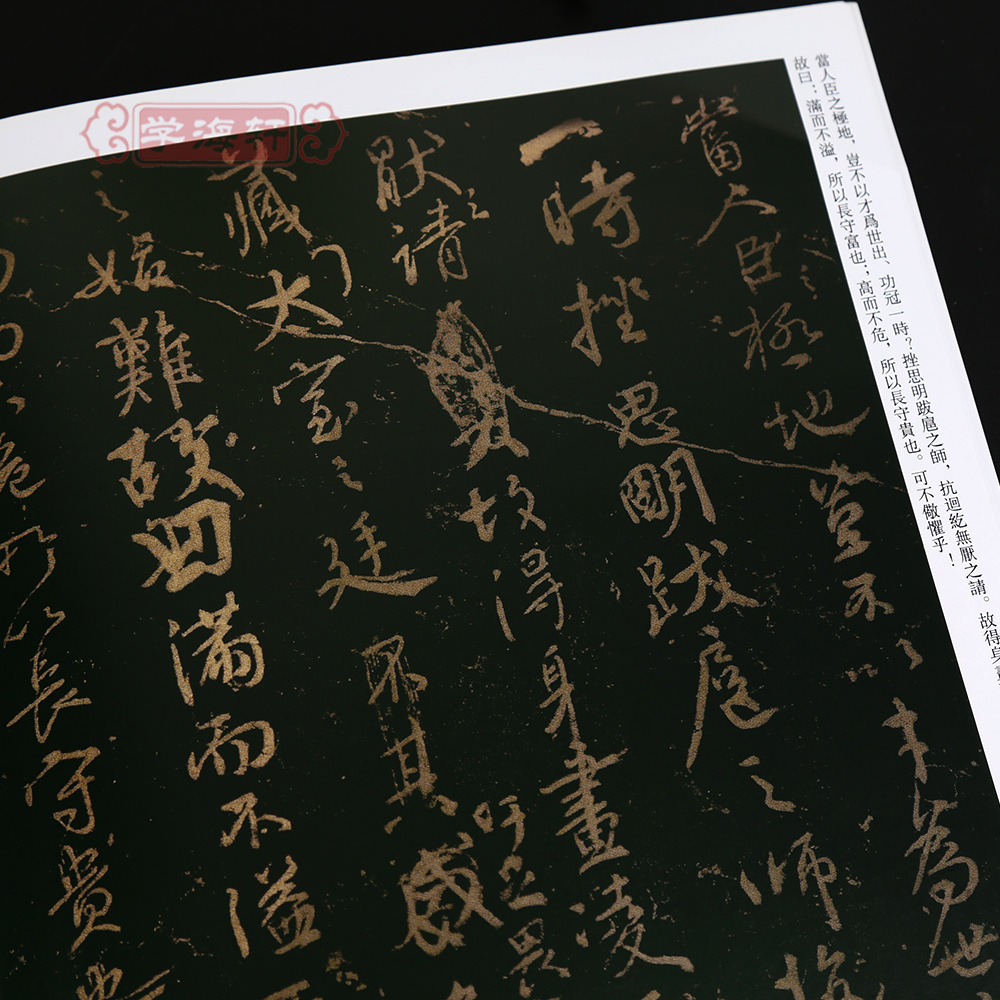 学海轩
當人臣之極地，豈不以才爲世出、功冠一時？挫思明跋扈之師，抗迴紇無厭之請。故得身
故曰：滿而不溢，所以長守富也；高而不危，所以長守貴也。可不儆懼乎！
當人臣之極地豈不以才為世
一時挫思明跋扈之師抗
猒之請故得身畫凌
藏太室之廷其威
吁足畏
之始難故曰滿而不溢
危所以長守貴